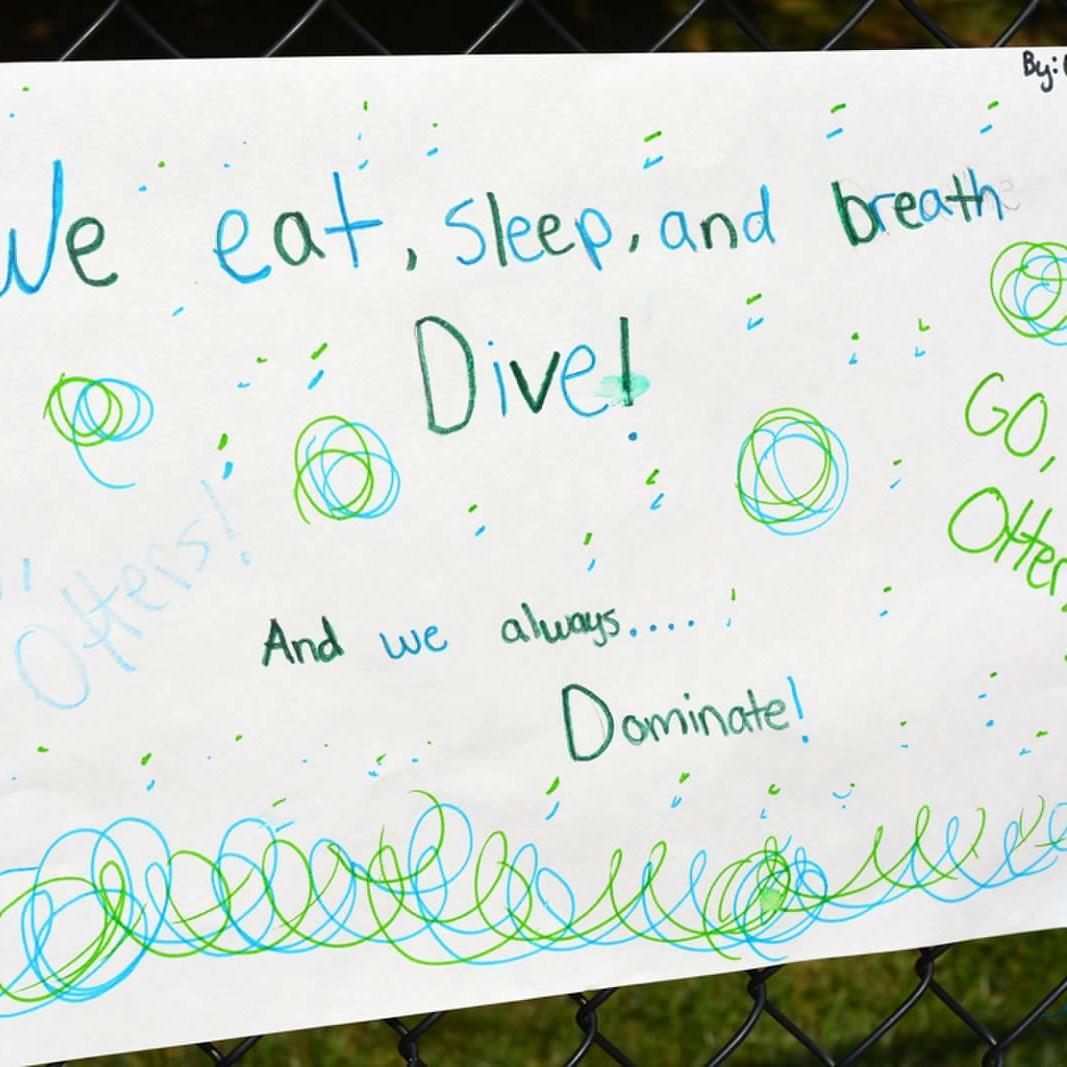 By:
We eat, sleep, and breath
Dive!
GO,
Otters!
Otter
And we always.....
Dominate!